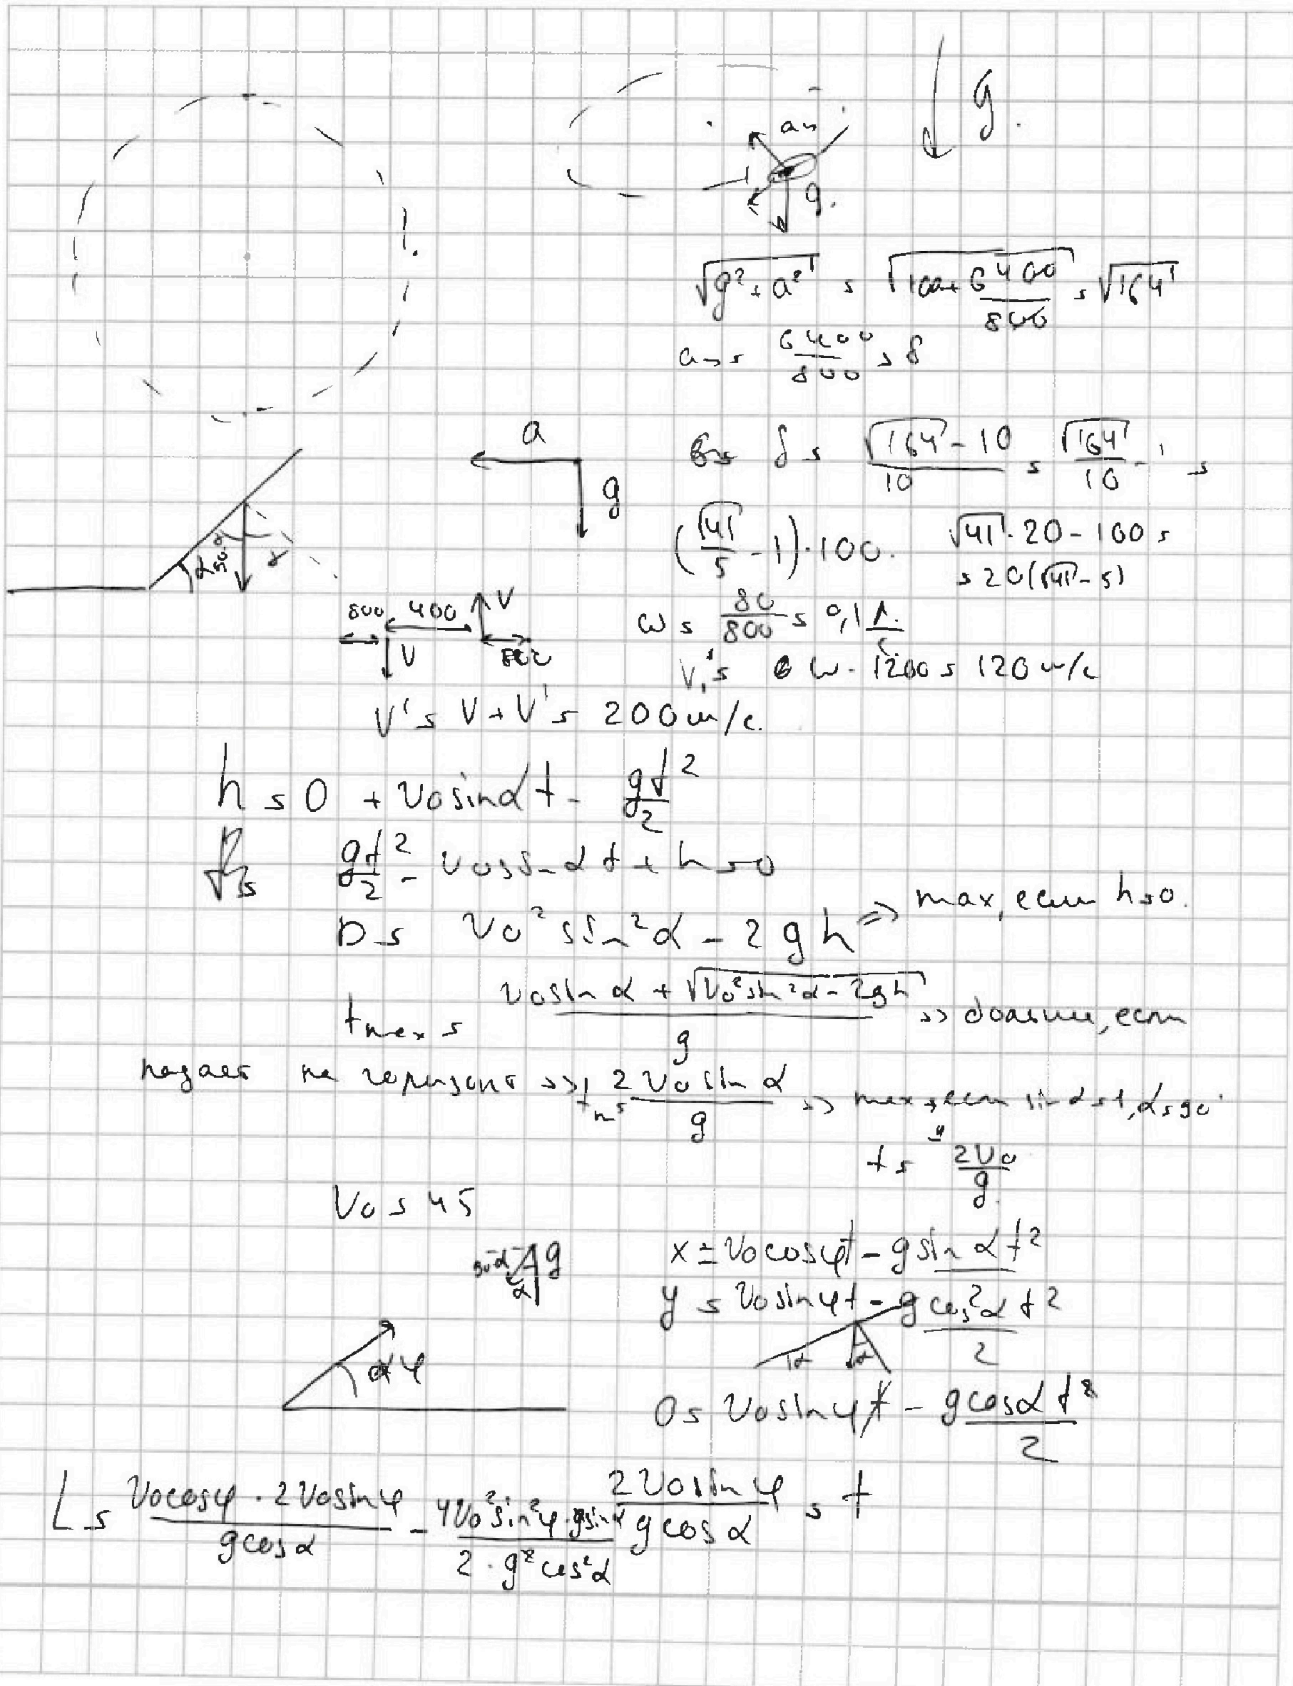 g
aₙ
g.
√(g²+a²) = √(100+6400/800) = √164
aₙ = 6400/800 = 8
a
g
δ = (√164 - 10)/10 = √164/10 - 1 =
(√41/5 - 1)·100. √41·20 - 100 =
= 20(√41 - 5)
800 400 V
V 800
ω = 80/800 = 0,1
V₁' = ω·1200 = 120 м/с
V' = V + V' = 200 м/с.
h = 0 + v₀sinα t - gt²/2
gt²/2 - v₀sinα t + h = 0
D = v₀²sin²α - 2gh ⇒ max, если h=0.
t max = (v₀sinα + √(v₀²sin²α - 2gh))/g ⇒ дольше, если
падает на горизонт ⇒ tₘ = 2v₀sinα/g ⇒ max, если sinα=1, α=90°
t = 2v₀/g
V₀ = 45
90-α g
α
x = v₀cosφt - gsinα t²
y = v₀sinφt - gcosα t²/2
α α
φ
0 = v₀sinφt - gcosα t²/2
L = v₀cosφ · 2v₀sinφ/gcosα - 4v₀²sin²φ·gsinα/2·g²cos²α
2v₀sinφ/gcosα = t